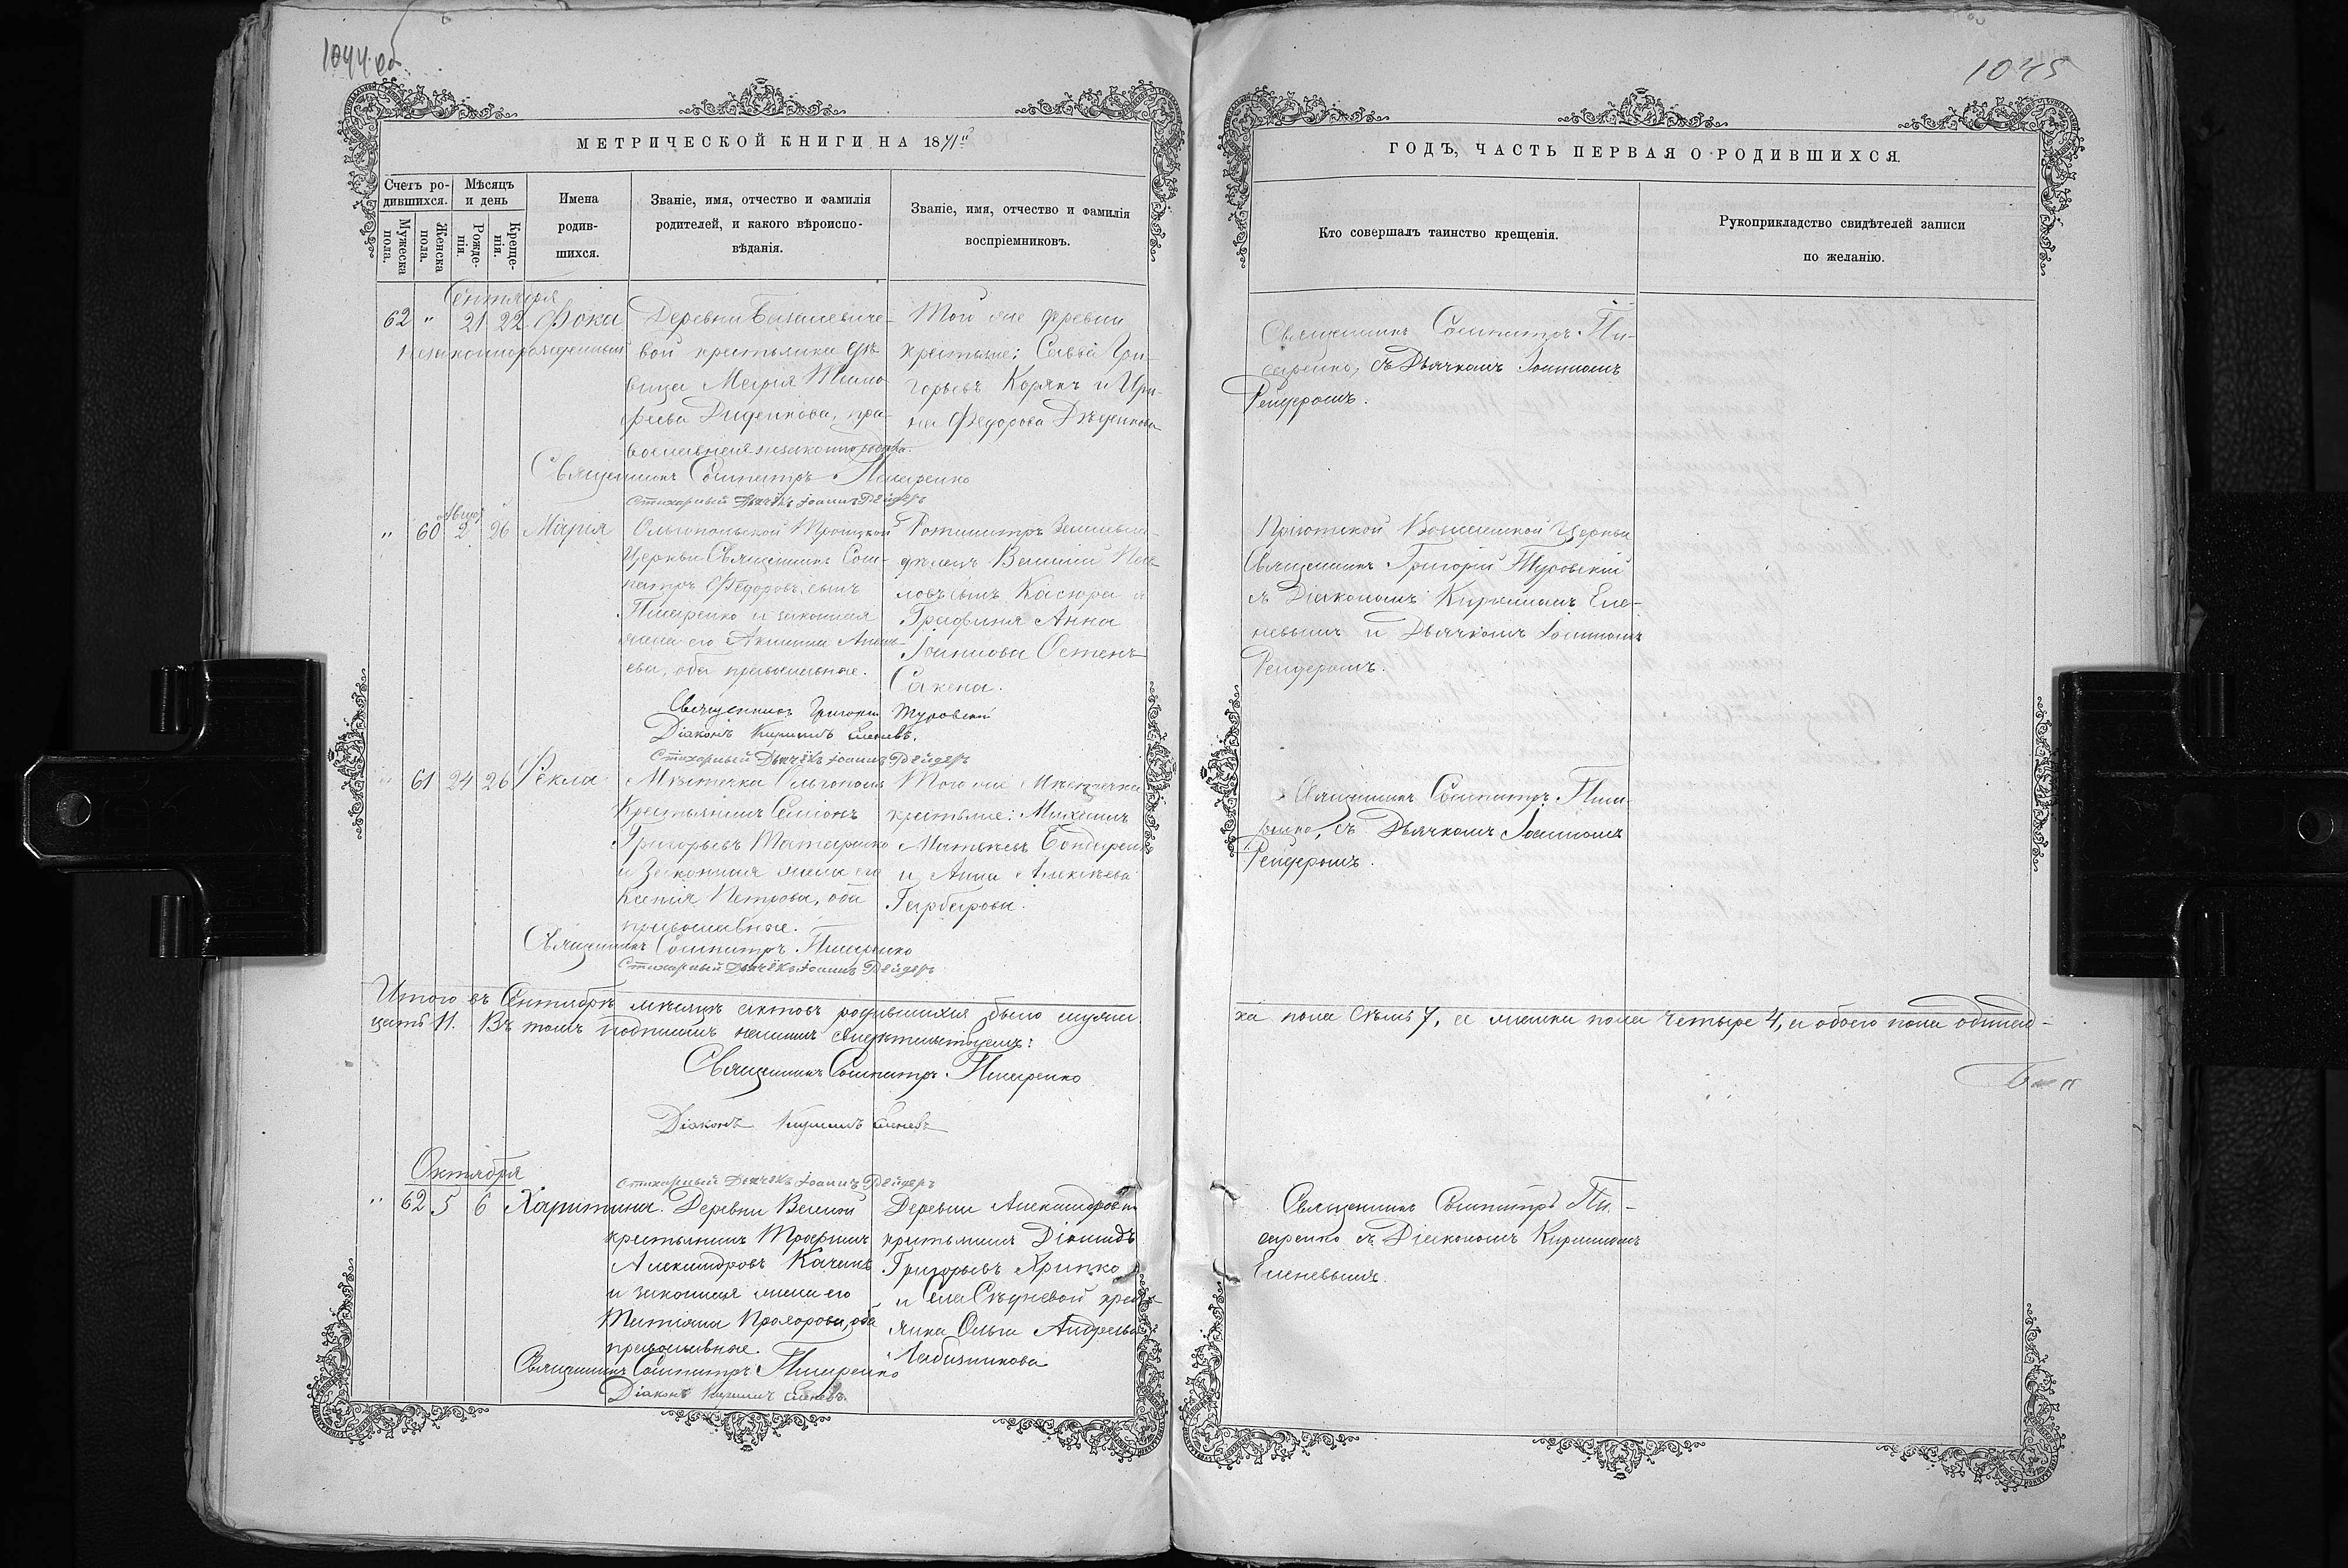 1044 об
1045
МЕТРИЧЕСКОЙ КНИГИ НА 1871й
ГОДЪ, ЧАСТЬ ПЕРВАЯ О РОДИВШИХСЯ.
Счетъ ро-
дившихся.
Мѣсяцъ
и день
Мужеска
пола.
Женска
пола.
Рожде-
нія.
Креще-
нія.
Имена
родив-
шихся.
Званіе, имя, отчество и фамилія
родителей, и какого вѣроиспо-
вѣданія.
Званіе, имя, отчество и фамилія
воспріемниковъ.
Кто совершалъ таинство крещенія.
Рукоприкладство свидѣтелей записи
по желанію.
Сентября
62 " 21 22 Фока
незаконнорожденный
Деревни
вой крестьянка дѣ-
вица Марія Тимо-
феева Диденкова, пра-
вославная незаконно
Того же деревни
крестьяне: Савва Гри-
горьевъ Корякъ и Ири-
на Федорова Дѣденкова
Священникъ Сосипатръ Пи-
саренко, съ Дьячкомъ Іоанномъ
Рейдеромъ.
Священникъ Сосипатръ Писаренко
Стихарный Дьячёкъ Іоаннъ Рейдеръ
" 60 2 26 Марія
Ольгопольской Троицкой
Церкви Священникъ Соси-
патръ Федоровъ сынъ
Писаренко и законная
жена его Акилина
ева, оба православные.
Ротмистръ
Василий Пав-
ловъ сынъ Касюра и
Графиня Анна
Іоаннова Остенъ
Сакена.
Церкви
Священникъ Григорій Туровскій
съ Діакономъ Кирилломъ Еле-
невымъ и Дьячкомъ Іоанномъ
Рейдеромъ.
Священникъ Григорій Туровскій
Діаконъ Кириллъ Еленевъ.
Стихарный Дьячёкъ Іоаннъ Рейдеръ
" 61 24 26 Ѳекла
Мѣстечка Ольгополя
Крестьянинъ Семіонъ
Григорьевъ Татаренко
и Законная жена его
Ксенія Петрова, оба
православные.
Того же Мѣстечка
крестьяне: Михаилъ
Матвѣевъ Бондаренко
и Анна Алексѣева
Гарбарова.
Священникъ Сосипатръ Писа-
ренко, съ Дьячкомъ Іоанномъ
Рейдеромъ.
Священникъ Сосипатръ Писаренко
Стихарный Дьячёкъ Іоаннъ Рейдеръ
Итого въ Сентябрѣ мѣсяцѣ актовъ родившихся было мужес-
ка пола Семь 7, а женска пола Четыре 4, а обоего пола одинад-
цать 11. Въ томъ подписомъ нашимъ свидѣтельствуемъ:
Священникъ Сосипатръ Писаренко
Діаконъ Кириллъ Еленевъ
Стихарный Дьячёкъ Іоаннъ Рейдеръ
Октября
" 62 5 6 Харитина.
Деревни Веселой
крестьянинъ Трофимъ
Александровъ Качанъ
и законная жена его
Татіана Прохорова, оба
православные.
Деревни Александровки
крестьянинъ Діомидъ
Григорьевъ Хрипко
и села Сѣдневой кресть-
янка Ольга Андреева
Лабизникова
Священникъ Сосипатръ Пи-
саренко съ Діакономъ Кирилломъ
Еленевымъ.
Священникъ Сосипатръ Писаренко
Діаконъ Кириллъ Еленевъ.